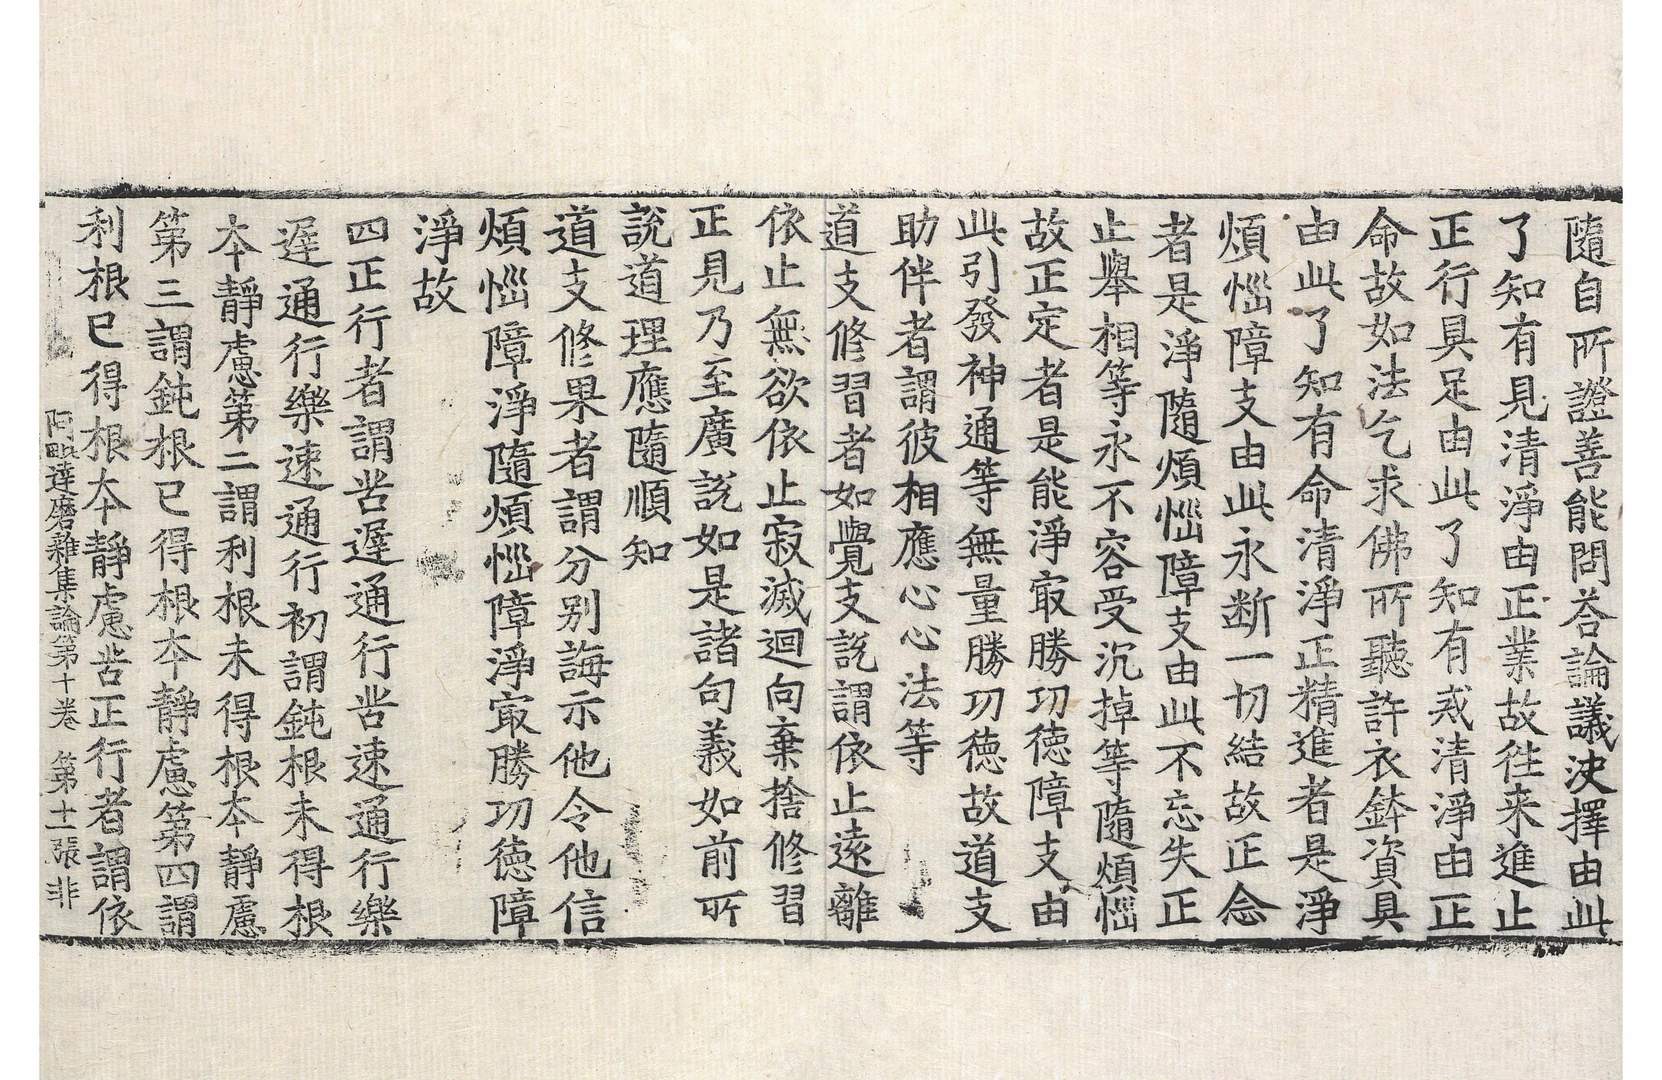 隨自所證善能問荅論議決擇由此
了知有見清淨由正業故往来進止
正行具足由此了知有戒清淨由正
命故如法乞求佛所聽許衣鉢資具
由此了知有命清淨正精進者是淨
煩惱障支由此永断一切結故正念
者是淨隨煩惱障支由此不忘失正
止舉相等永不容受沉掉等隨煩惱
故正定者是能淨㝡勝功徳障支由
此引發神通等無量勝功徳故道支
助伴者謂彼相應心心法等
道支修習者如覺支說謂依止遠離
依止無欲依止寂滅迴向棄捨修習
正見乃至廣說如是諸句義如前所
說道理應隨順知
道支修果者謂分別誨示他令他信
煩惱障淨隨煩惱障淨㝡勝功徳障
淨故
四正行者謂苦遲通行苦速通行樂
遲通行樂速通行初謂鈍根未得根
本靜慮第二謂利根未得根本靜慮
第三謂鈍根已得根本靜慮第四謂
利根已得根本靜慮苦正行者謂依
阿毗達磨雜集論第十卷 第十一張 非